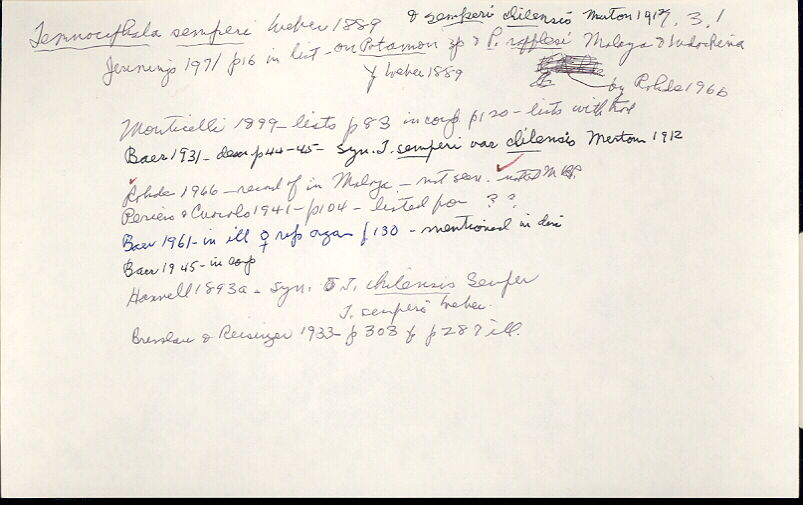 Temnocephala semperi Weber 1889 & semperi chilensis Merton 1912, 3, 1
Jennings 1971 p16 in list - on Potamon sp & P. rafflesi Malaya & Indochina
by Weber 1889 by Rohde 1966
Monticelli 1899 - lists p83 in comp. p120 - lists with
Baer 1931 - desc p44-45 - syn. T. semperi var chilensis Merton 1912
Rohde 1966 - record of in Malaya - not seen.
Pereira & Cuocolo 1941 - p104 - listed for ? ?
Baer 1961 - in ill ♀ rep organ p130 - mentioned in
Baer 1945 - in comp
Haswell 1893a - syn. T. chilensis Semper
T. semperi Weber.
Bresslau & Reisinger 1933 - p303 & p287 ill.